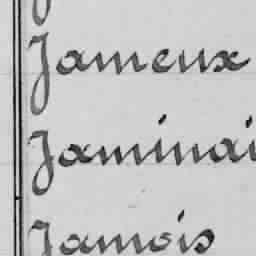 Jameux
Jaminai
Jamois